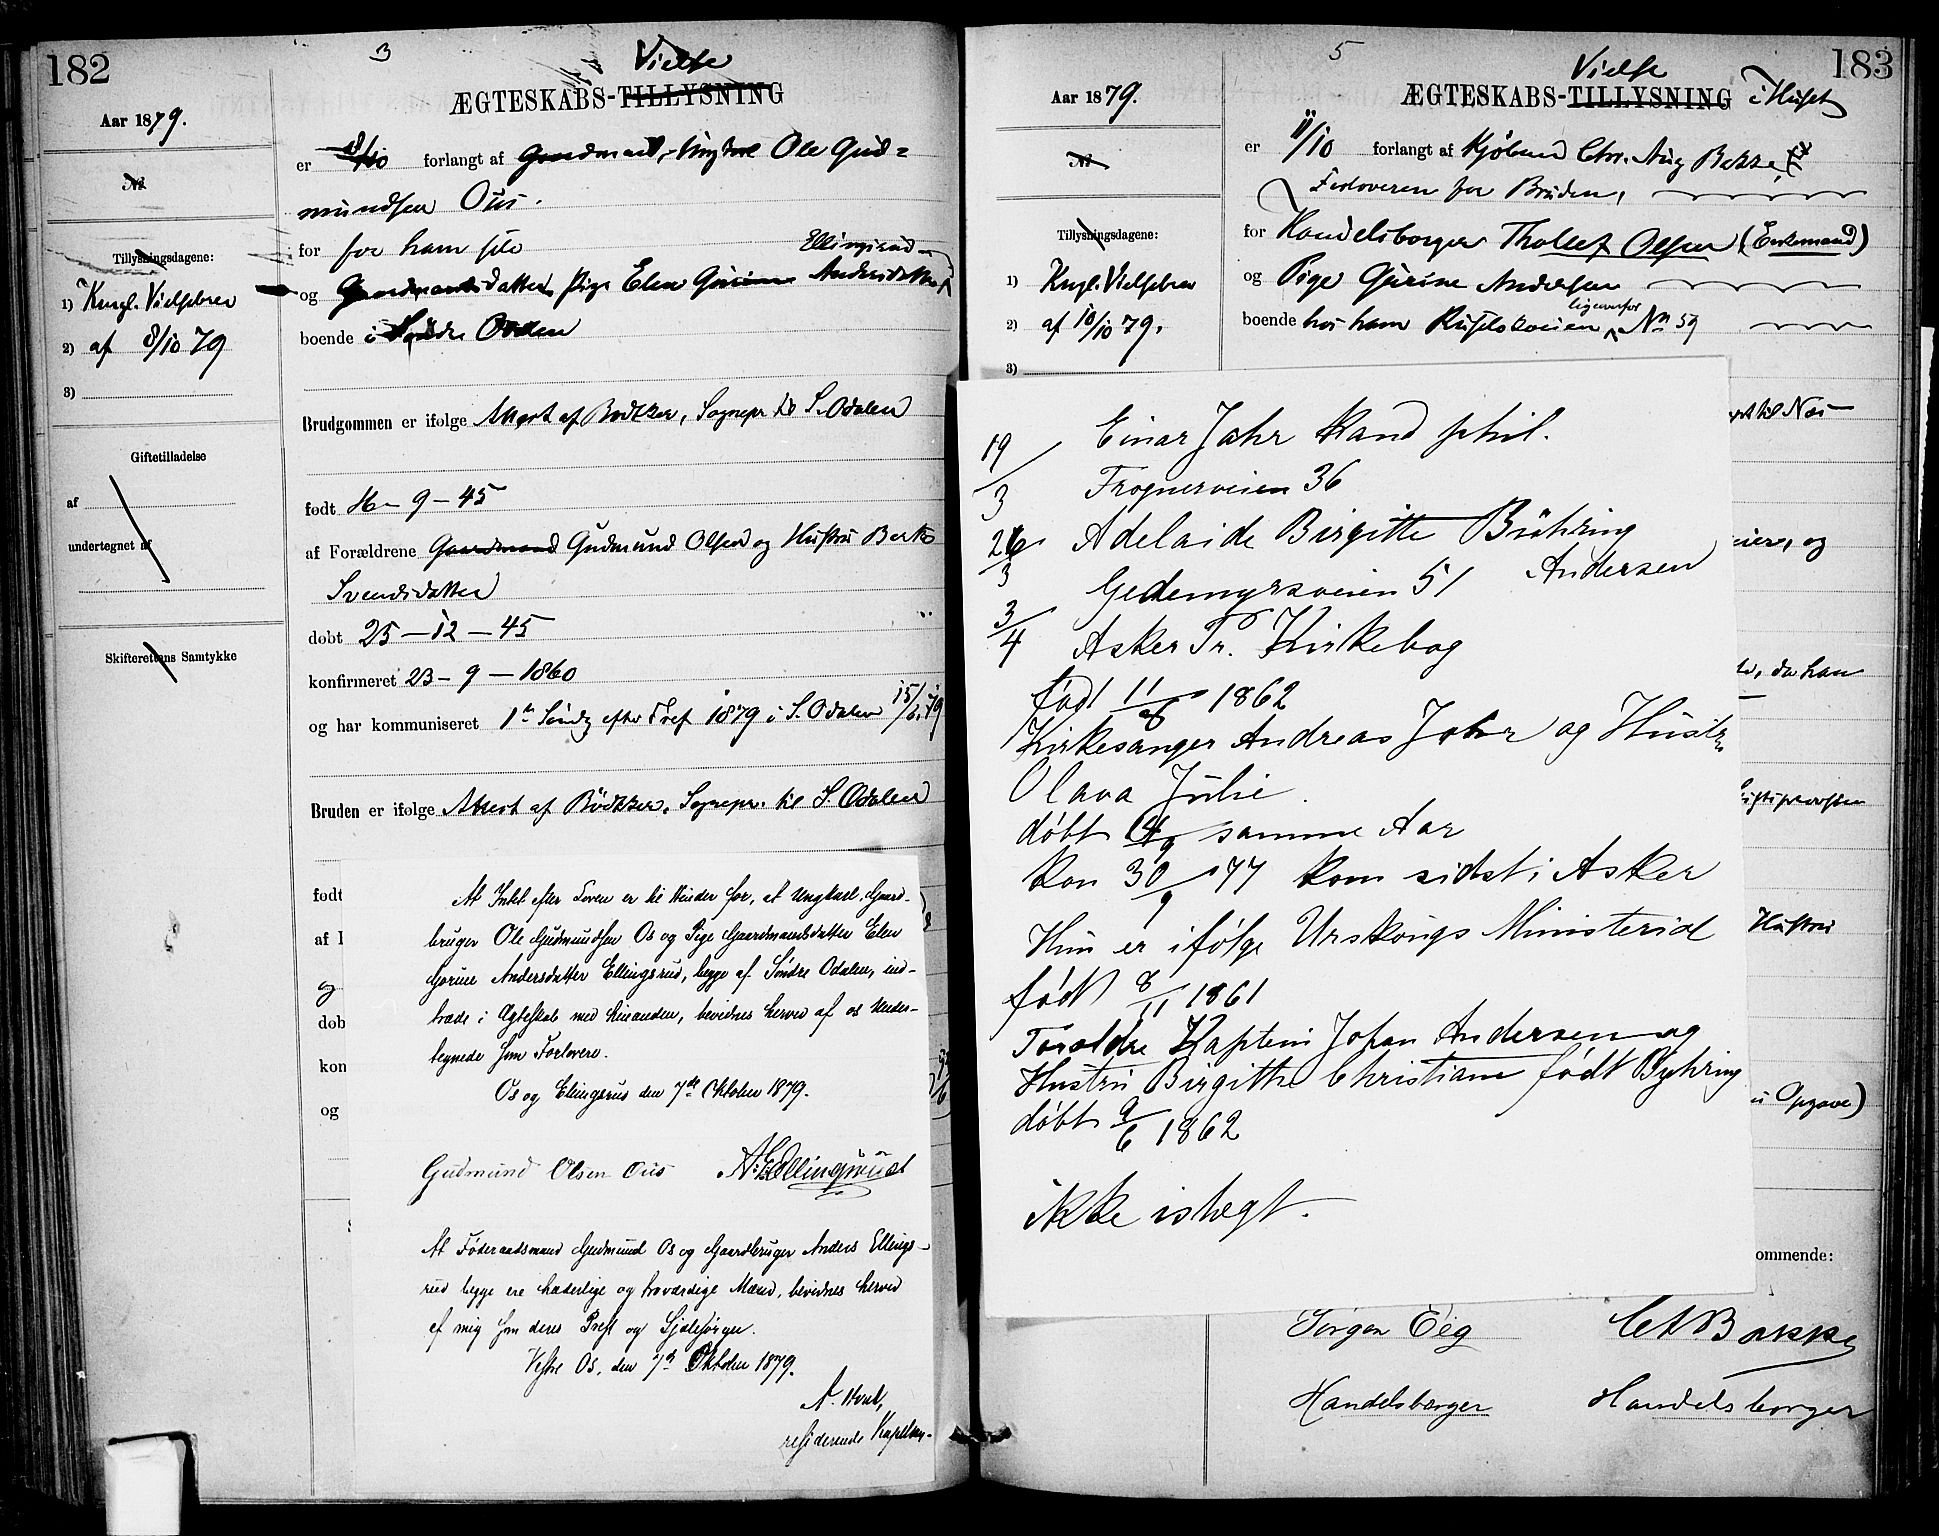 182
3
Vielse
ÆGTESKABS-TILLYSNING
Aar 1879.
No
er 8/10 forlangt af Gaardmand, Ungkarl Ole Gud=
mundsen Ous.
Tillysningsdagene:
for for ham selv
Ellingsrud
1) Kngl. Vielsebrev
og Gaardmandsdatter, Pige Elen Gurine Andersdatter
2) af 8/10 79
boende i Søndre Odalen
3)
Brudgommen er ifølge Attest af Bødtker, Sognepr. til S. Odalen
Giftetilladelse
af
født 16 - 9 - 45
undertegnet af
af Forældrene Gaardmand Gudmund Olsen og Hustru Berte
Svendsdatter
døbt 25 - 12 - 45
Skifterettens Samtykke
konfirmeret 23 - 9 - 1860
og har kommuniseret 1ste Søndg efter Tref 1879 i S. Odalen 15/6 79
Bruden er ifølge Attest af Bødtker, Sognepr. til S. Odalen
født
af F
og
døb
kon
og
At Intet efter Loven er til Hinder for, at Ungkarl, Gaard-
bruger Ole Gudmundsen Os og Pige Gaardmandsdatter Elen
Gorine Andersdatter Ellingsrud, begge af Søndre Odalen, ind-
træde i Ægteskab med hinanden, bevidnes herved af os Under-
tegnede som Forlovere.
Os og Elingsrud den 7de Oktober 1879.
Gudmund Olsen Ous A. Ellingsrud
At Føderaadsmand Gudmund Os og Gaardbruger Anders Ellings-
rud begge ere hæderlige og troværdige Mænd, bevidnes herved
af mig som deres Præst og Sjælesørger.
Vestre Os, den 7de Oktober 1879.
residerende Kapellan.
183
5
Vielse
ÆGTESKABS-TILLYSNING i Huset
Aar 1879.
No
er 11/10 forlangt af Kjøbmd Chr. Aug Bakke,
Forloveren for Bruden,
Tillysningsdagene:
for Handelsborger Tholef Olsen (Enkemand)
1) Kngl. Vielsebrev
og Pige Gurine Andersen
2) af 10/10 79.
ligeoverfor
boende hos ham Ruseløkveien No 59
3)
Einar Jahr Kand phil.
19/3
Frognerveien 36
26/3
Adelaide Birgitte Bühring
Andersen
Gedemyrsveien 51
3/4
Asker Pr. Kirkebog
født 11/8 1862
Kirkesanger Andreas Jahr og Hustr
Olava Julie.
døbt 14/9 samme Aar
Kon 30/9 77 kom sidst i Asker
Hun er ifølge Urskougs Ministerial
født 8/11 1861
Forældre Kaptein Johan Andersen og
Hustru Birgitte Christiane født Byhring
døbt 9/6 1862
ikke istegt.
til Næs
eier, og
da han
Stiftsprovsten
Hustru
Opgave)
ommende:
Jørgen Eeg CA Bakke
Handelsborger Handelsborger